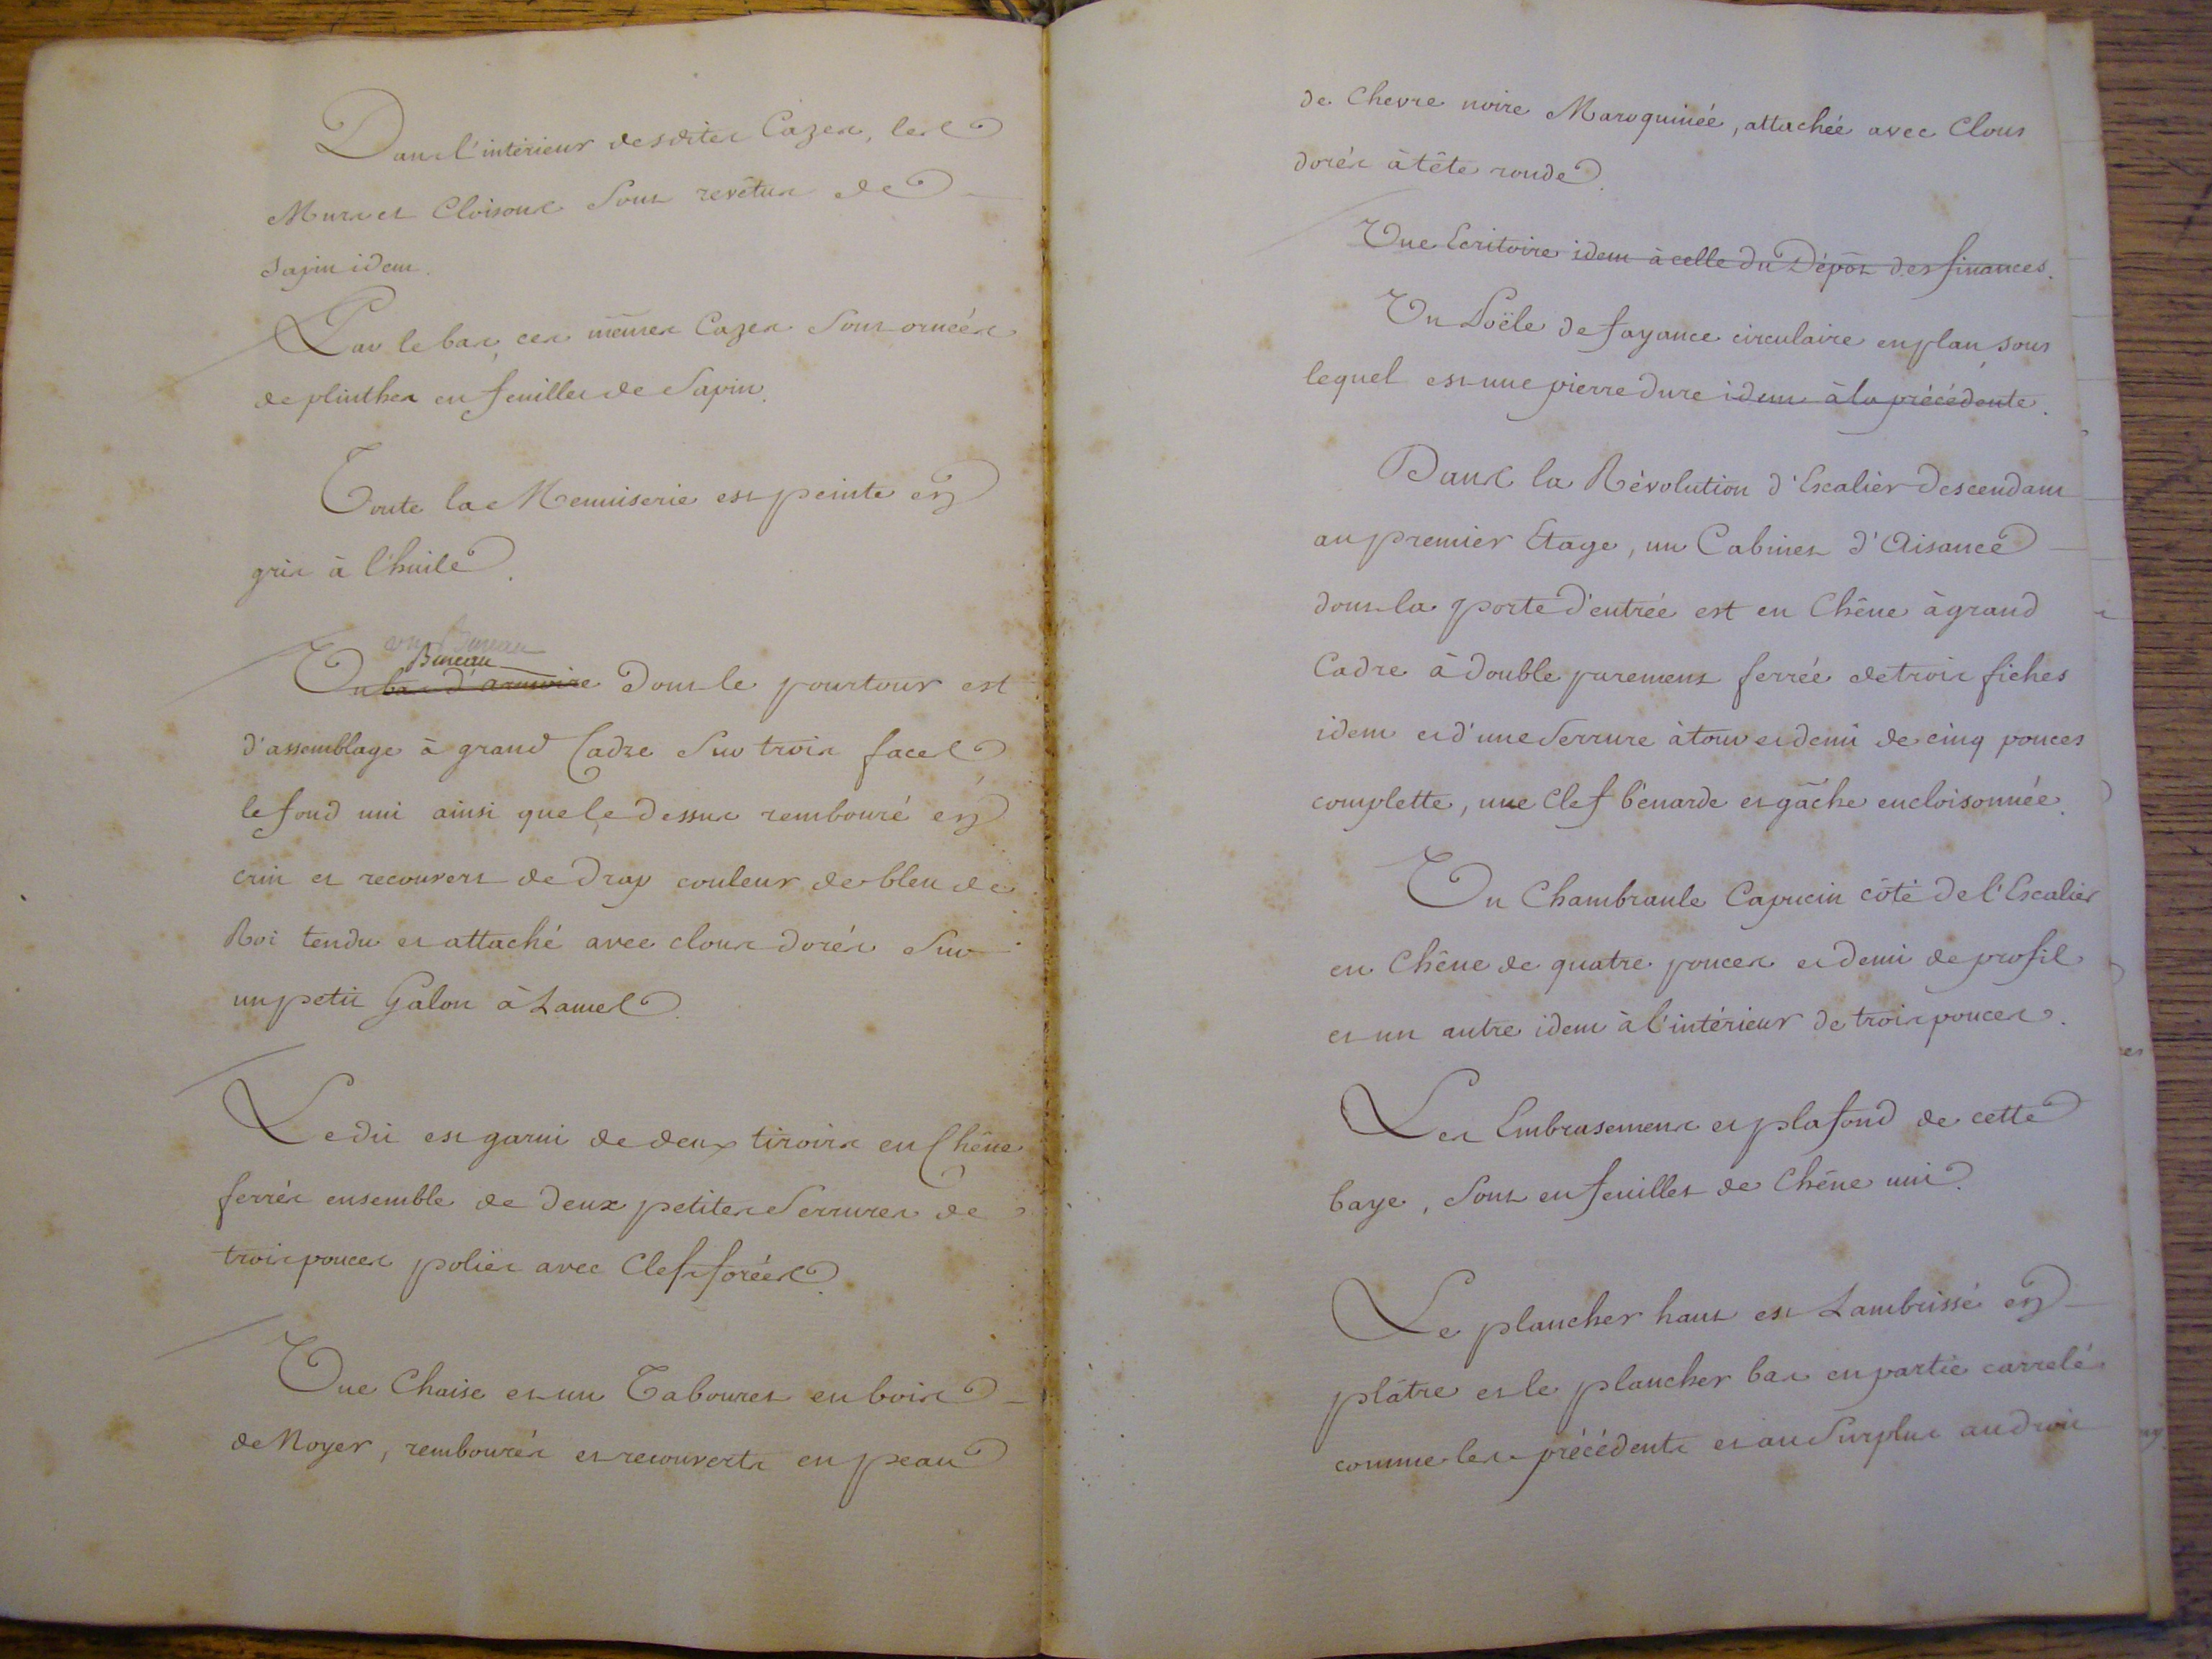 Dans l'intérieur desdites Cazes, les
Murs et Cloisons sont revêtus de
Sapin idem.
Par le bas, ces mêmes Cazes sont ornées
de plinthes en feuilles de Sapin.
Toute la Menuiserie est peinte en
gris à l'huile.
un Bureau
Bureau
Un bas d'armoire dont le pourtour est
d'assemblage à grand Cadre sur trois faces
le fond uni ainsi que le dessus rembouré en
crin et recouvert de drap couleur de bleu de
Roi tendu et attaché avec clous dorés sur
un petit Galon à Lames.
Ledit est garni de deux tiroirs en Chêne
ferrés ensemble de deux petites Serrures de
trois pouces polies avec Clefs forées.
Une Chaise et un Tabouret en bois
de Noyer, rembourés et recouverts en peau
de Chevre noire Maroquinée, attachée avec Clous
dorés à tête ronde.
Une Ecritoire idem à celle du Dépôt des finances.
Un Poële de fayance circulaire en plan sous
lequel est une pierre dure idem à la précédente.
Dans la Révolution d'Escalier descendant
au premier Etage, un Cabinet d'Aisance
dont la porte d'entrée est en Chêne à grand
Cadre à double parement ferrée de trois fiches
idem et d'une Serrure à tour et demi de cinq pouces
complette, une Clef bénarde et gâche encloisonnée.
Un Chambranle Capucin côté de l'Escalier
en Chêne de quatre pouces et demi de profil
et un autre idem à l'intérieur de trois pouces.
Les Embrasemens et plafond de cette
baye, sont en feuilles de Chêne uni.
Le plancher haut est Lambrissé en
plâtre et le plancher bas en partie carrelé
comme les précédents et au Surplus au droit